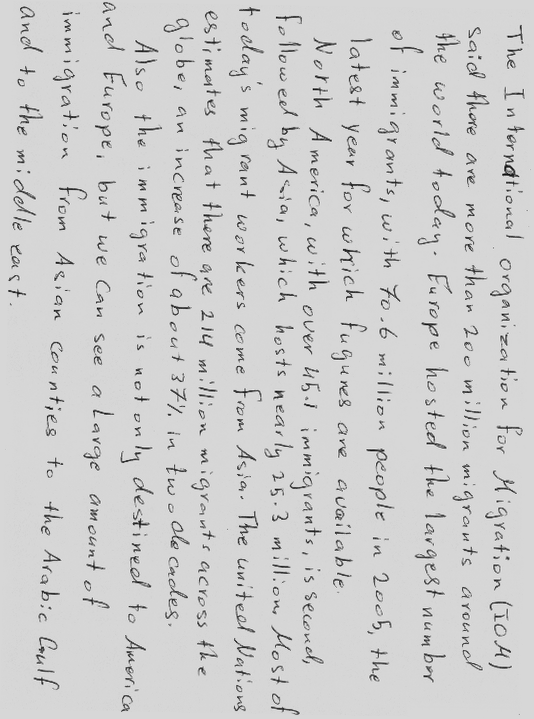 The International organization for Migration (IOM)
said there are more than 200 million migrants around
the world today. Europe hosted the largest number
of immigrants, with 70.6 million people in 2005, the
latest year for which fugures are available.
North America, with over 45.1 immigrants, is second,
followed by Asia, which hosts nearly 25.3 million. Most of
today's migrant workers come from Asia. The united Nations
estimates that there are 214 million migrants across the
globe, an increase of about 37% in two decades.
Also the immigration is not only destined to America
and Europe, but we can see a large amount of
immigration from Asian Counties to the Arabic Gulf
and to the middle east.